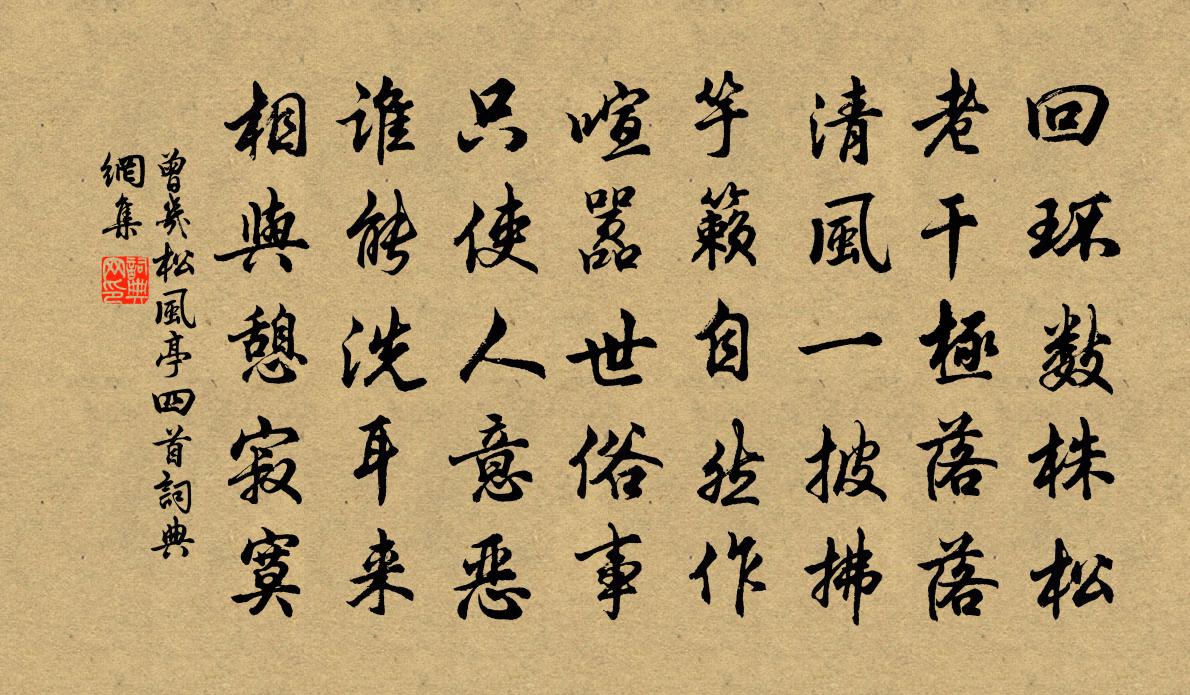 回环数株松
老干極落落
清風一披拂
竽籟自然作
喧嚣世俗事
只使人意恶
谁能洗耳来
相與憩寂寞
曾幾松風亭四首詞典
網集
詞典
网印